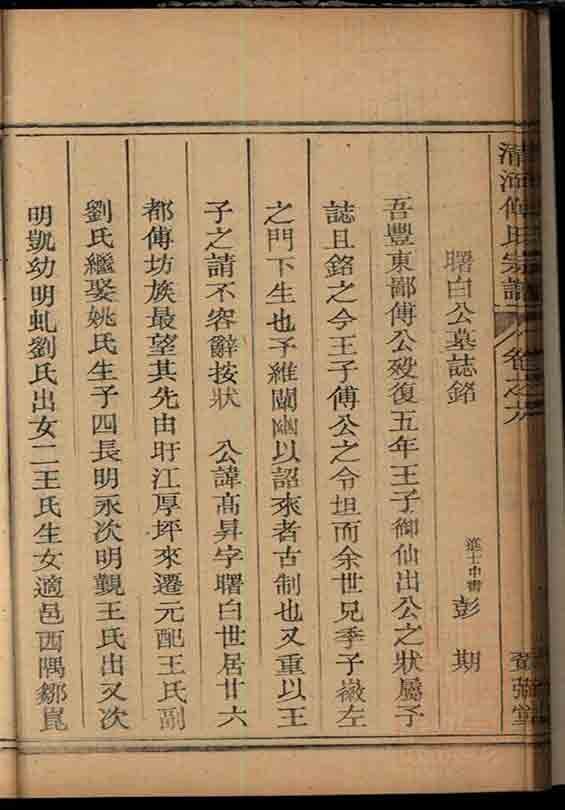 清河傅氏宗譜 卷之六
曙白公墓誌銘
進士中書 彭期
吾豐東鄙傅公歿復五年王子御仙出公之狀屬予
誌且銘之今王子傅公之令坦而余世兄季子嶶左
之門下生也予維闡幽以詔來者古制也又重以王
子之請不容辭按狀 公諱髙昇字曙白世居廿六
都傅坊族最望其先由盱江厚坪來遷元配王氏副
劉氏繼娶姚氏生子四長明永次明觀王氏出又次
明凱幼明虬劉氏出女二王氏生女適邑西隅鄒崑